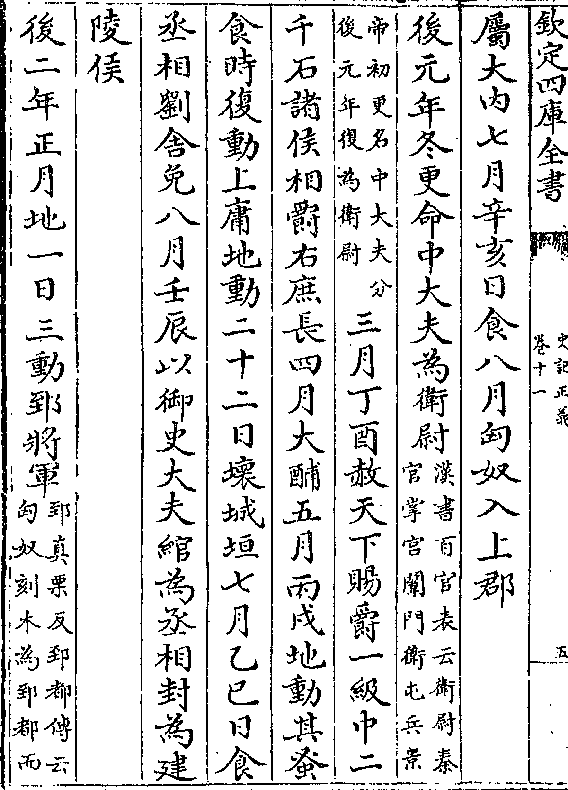 欽定四庫全書
史記正義
卷十一
五
屬大内七月辛亥日食八月匈奴入上郡
後元年冬更命中大夫為衛尉
漢書百官表云衛尉秦
官掌宮闈門衛屯兵景
帝初更名中大夫分
後元年復為衛尉
三月丁酉赦天下賜爵一級中二
千石諸侯相爵右庶長四月大酺五月丙戌地動其蚤
食時復動上庸地動二十二日壞城垣七月乙巳日食
丞相劉舍免八月壬辰以御史大夫綰為丞相封為建
陵侯
後二年正月地一日三動郅將軍
郅真栗反郅都傳云
匈奴刻木為郅都而